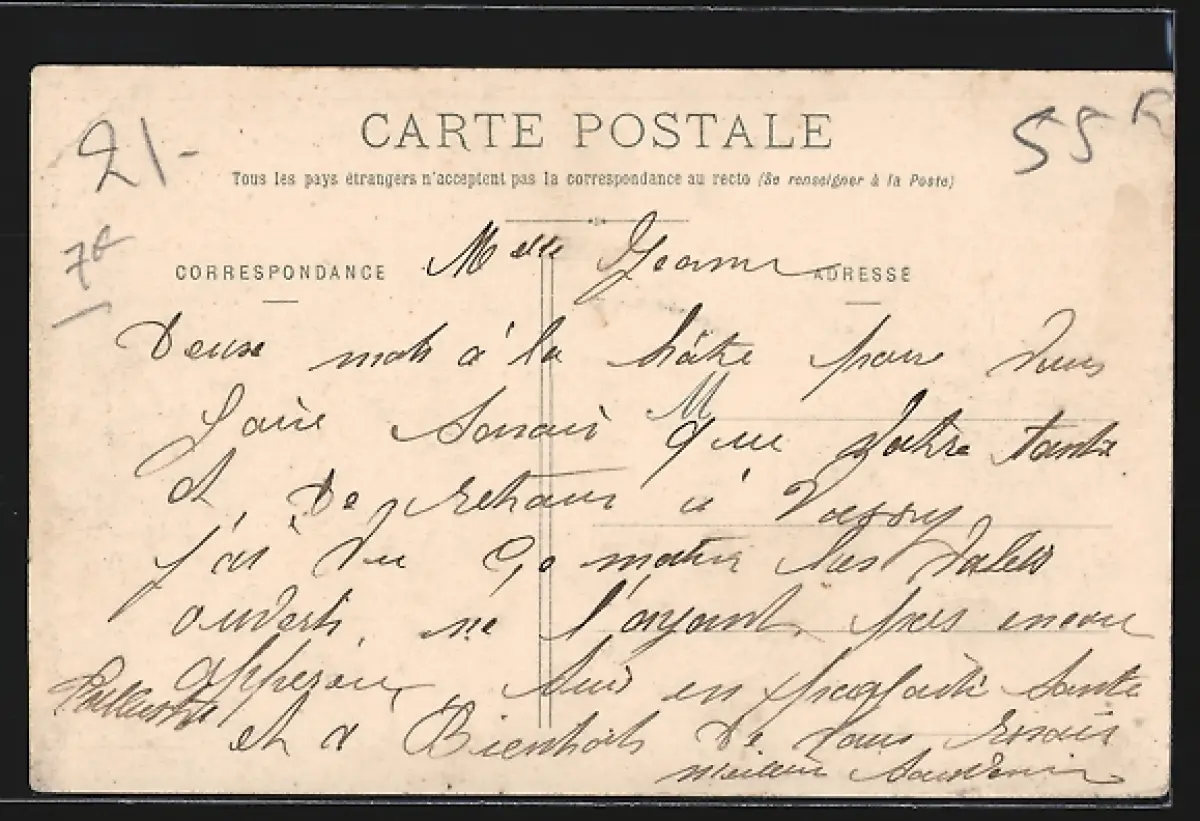 CARTE POSTALE
Tous les pays étrangers n'acceptent pas la correspondance au recto (Se renseigner à la Poste)
21-
55 R
7€
CORRESPONDANCE
ADRESSE
Melle Jeanne
Deux mots à la hâte pour vous
M
faire savoir que votre tante
et De retour à Vassy
j'ai vu ce matin les Volets
ouverts, ne l'ayant pas encore
suis en parfaite santé
et a Bientôt De vous revoir
meilleur souvenir